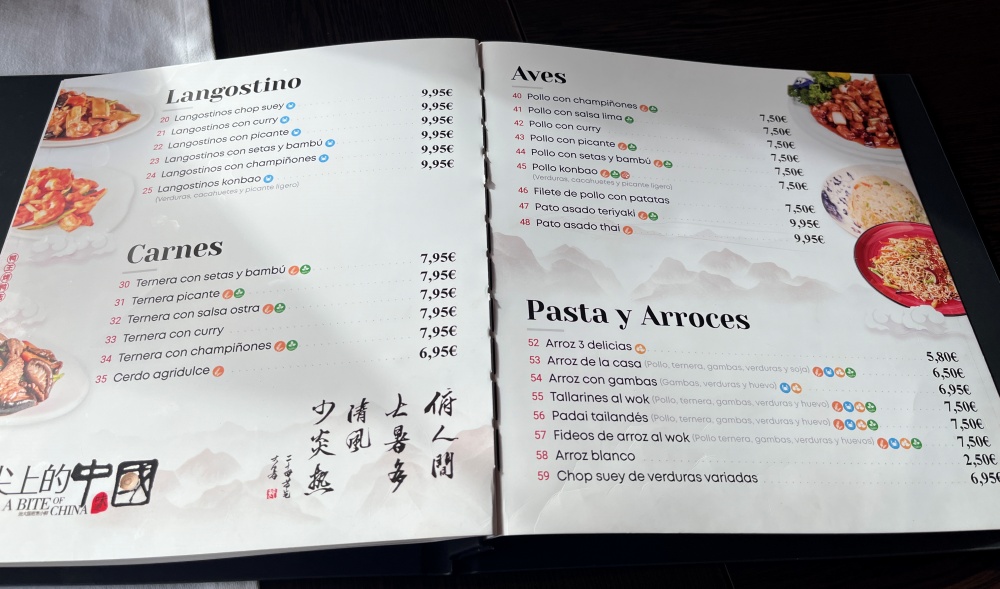 Langostino
20 Langostinos chop suey 9,95€
21 Langostinos con curry 9,95€
22 Langostinos con picante 9,95€
23 Langostinos con setas y bambú 9,95€
24 Langostinos con champiñones 9,95€
25 Langostinos konbao 9,95€
(Verduras, cacahuetes y picante ligero)
Carnes
30 Ternera con setas y bambú 7,95€
31 Ternera picante 7,95€
32 Ternera con salsa ostra 7,95€
33 Ternera con curry 7,95€
34 Ternera con champiñones 7,95€
35 Cerdo agridulce 6,95€
俯人間
上暑多
清風
少炎熱
尖上的中國
A BITE OF
CHINA
Aves
40 Pollo con champiñones 7,50€
41 Pollo con salsa lima 7,50€
42 Pollo con curry 7,50€
43 Pollo con picante 7,50€
44 Pollo con setas y bambú 7,50€
45 Pollo konbao 7,50€
(Verduras, cacahuetes y picante ligero)
46 Filete de pollo con patatas 7,50€
47 Pato asado teriyaki 9,95€
48 Pato asado thai 9,95€
Pasta y Arroces
52 Arroz 3 delicias 5,80€
53 Arroz de la casa (Pollo, ternera, gambas, verduras y soja) 6,50€
54 Arroz con gambas (Gambas, verduras y huevo) 6,95€
55 Tallarines al wok (Pollo, ternera, gambas, verduras y huevo) 7,50€
56 Padai tailandés (Pollo, ternera, gambas, verduras y huevo) 7,50€
57 Fideos de arroz al wok (Pollo ternera, gambas, verduras y huevos) 7,50€
58 Arroz blanco 2,50€
59 Chop suey de verduras variadas 6,95€